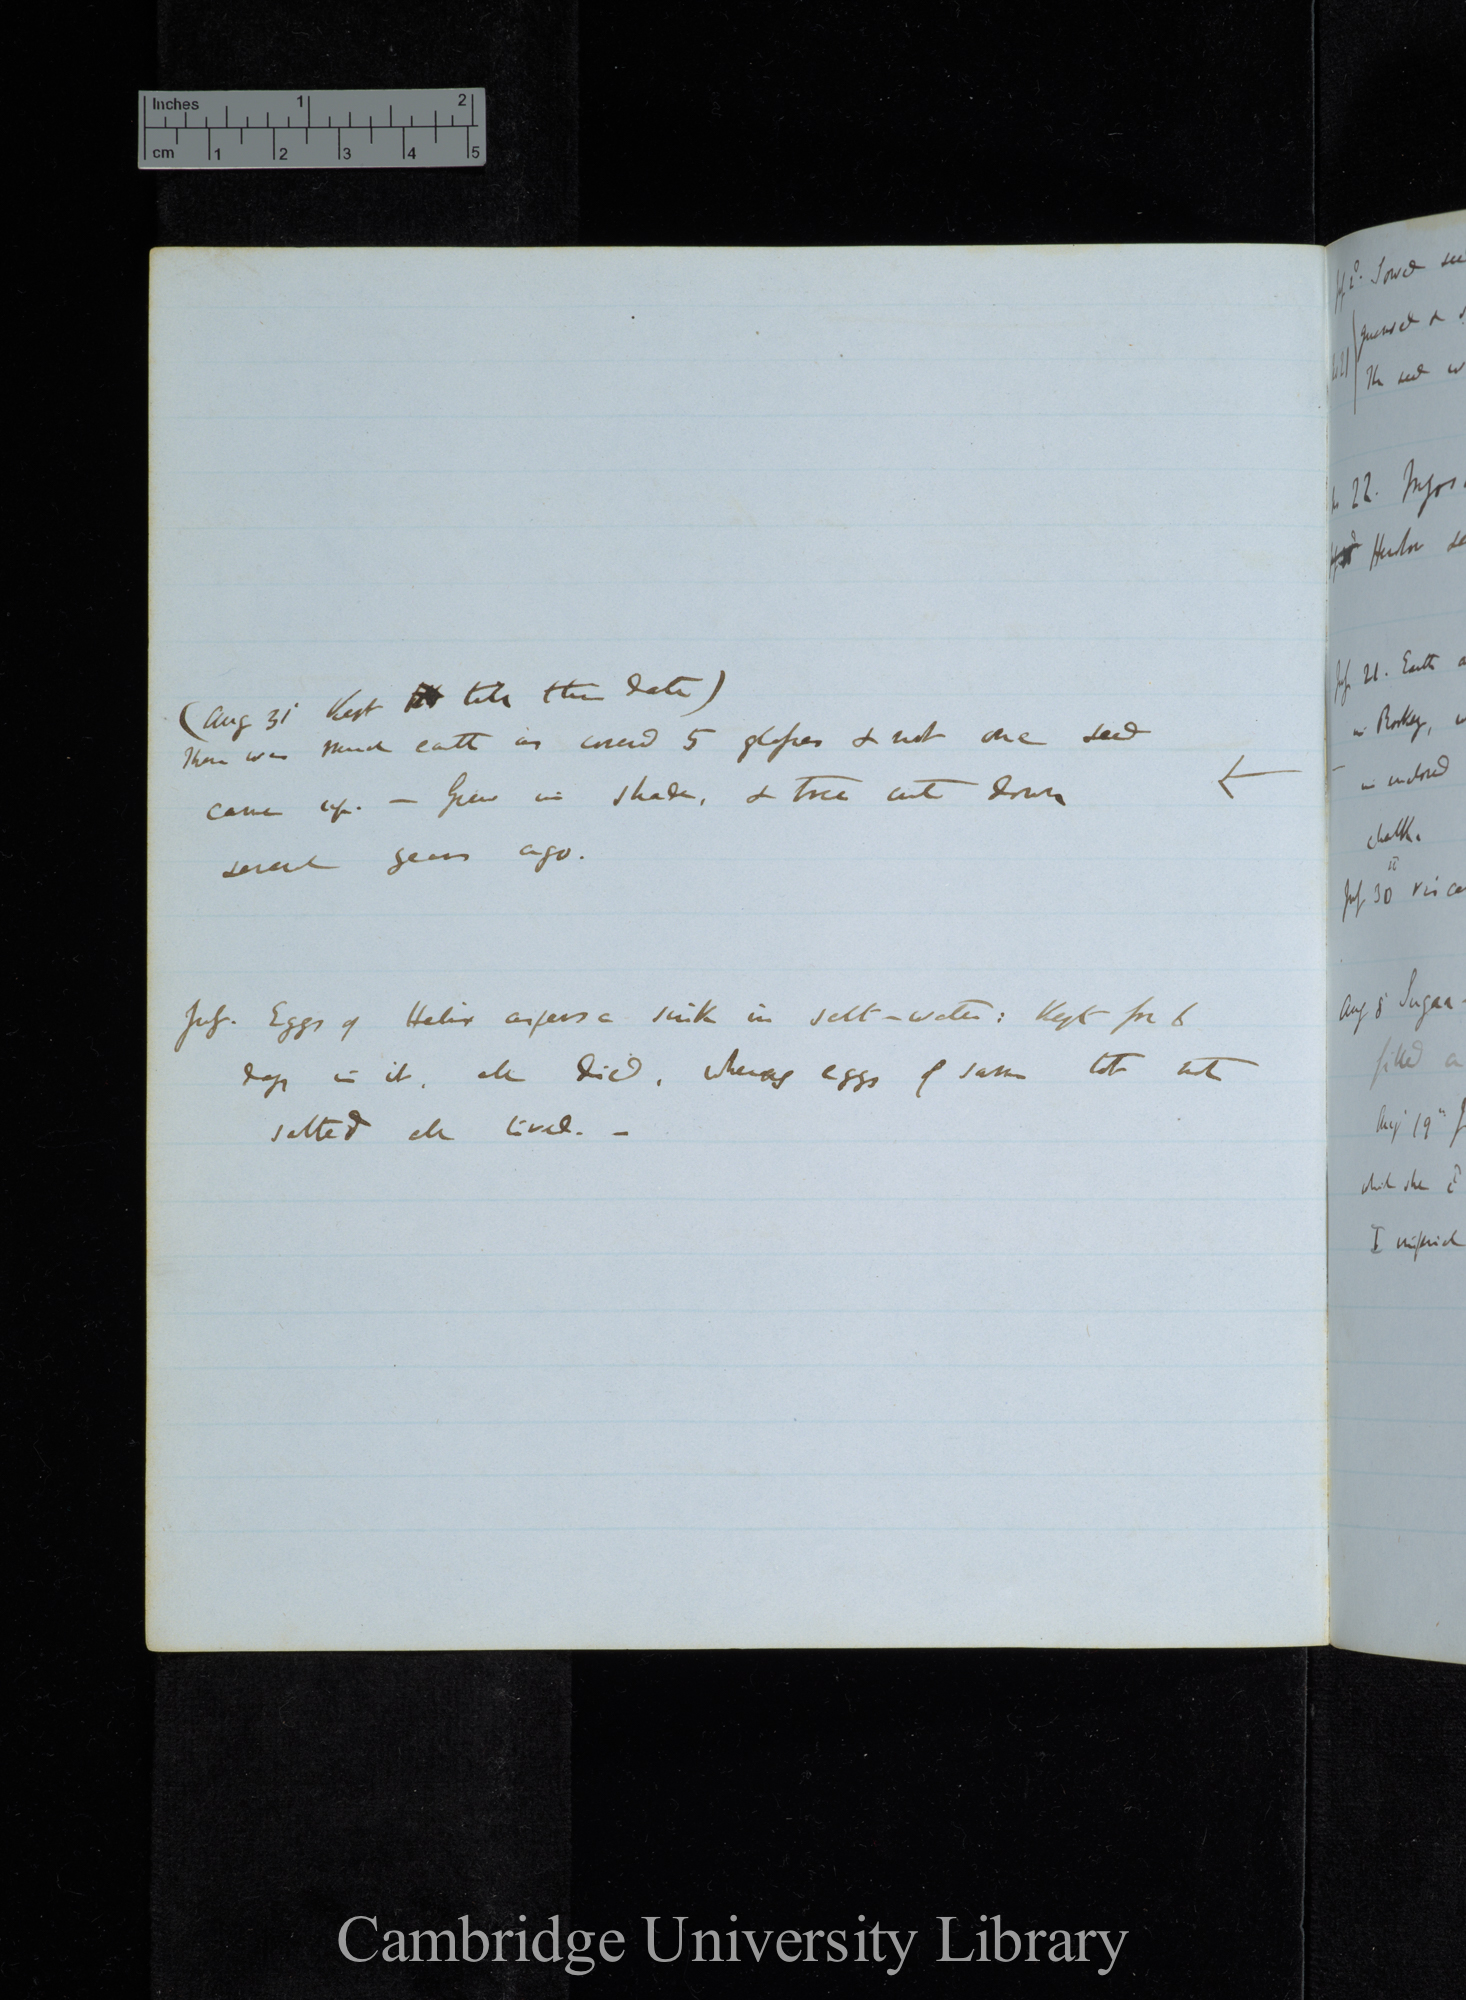 Inches 1 2
cm 1 2 3 4 5
(Aug 31 Kept till this date)
There was much earth as cover 5 glasses & not one seed
came up. — Grew in shade, & tree cut down
several years ago.
July. Eggs of Helix aspersa sink in salt-water: Kept for 6
days in it, all died, whereas eggs of same lot not
salted all lived. —
Sowed
The seed w
22.
21. Earth
in
in enclosed
chalk.
30
Aug 8 Sugar
filled
Aug 19th
which she
I
Cambridge University Library